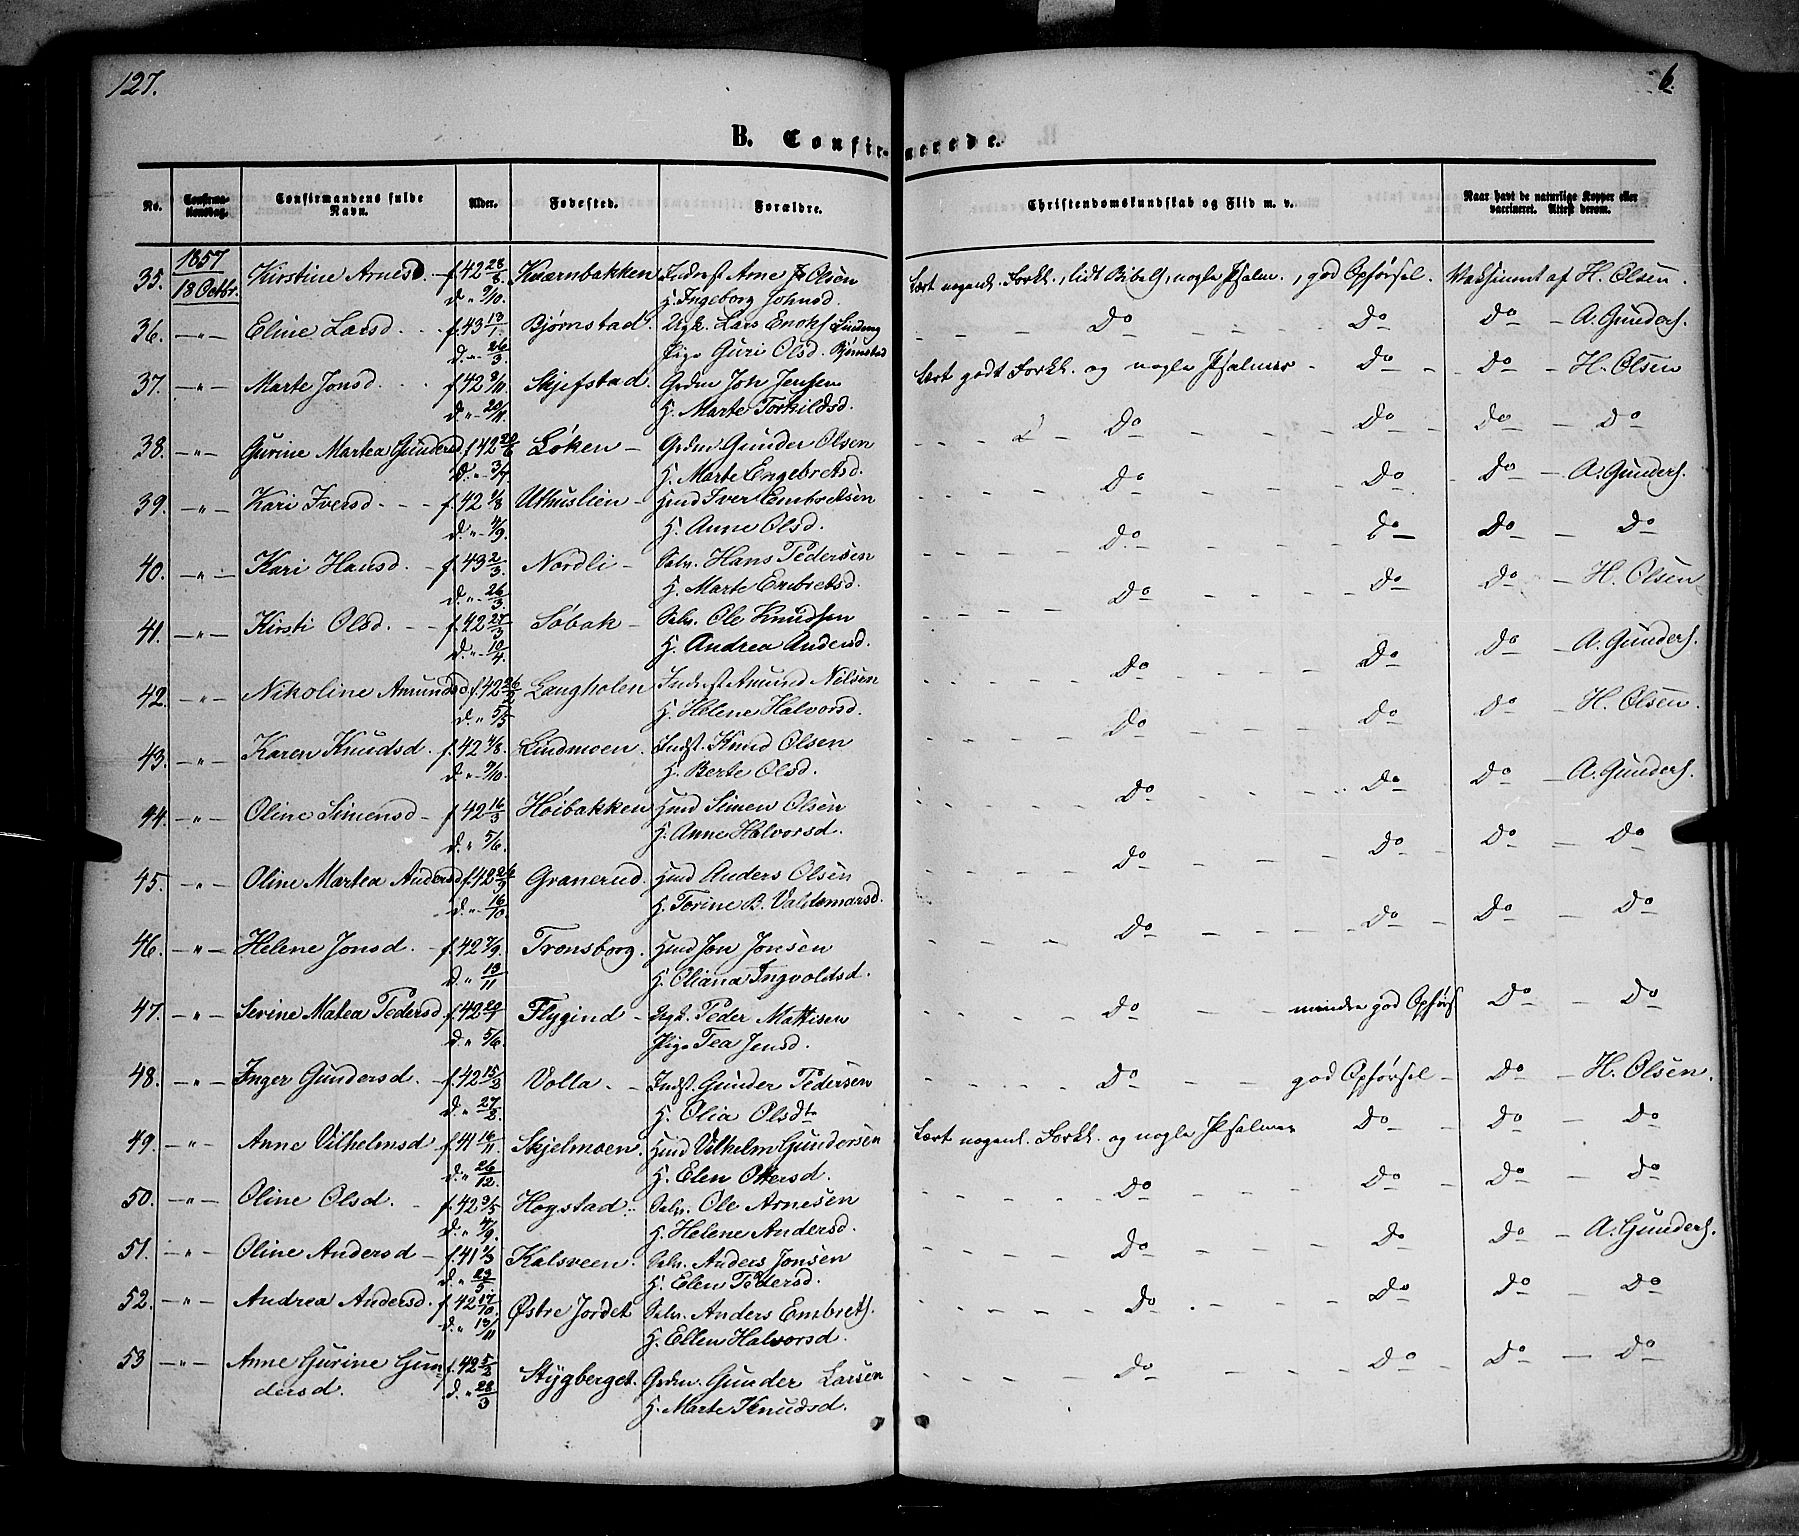 127.
6.
B. Confir-merede.
No. Confirma-tionsdag. Confirmandens fulde Navn. Alder. Fødested. Forældre. Christendomskundskab og Flid m. v. Naar havt de naturlige Kopper eller vaccineret. Attest derom.
1857
35. 18 Octbr. Kirstine Arnesd. f. 42 28/8 Kværnbakken Inderst Arne Olsen Lært nogenl. Forkl., lidt Bibelh., nogle Psalm., god Opførsel. Vaksineret af H. Olsen
d. " 9/10. H. Ingeborg Johnsd.
36. — " — Eline Larsd. f. 43 13/1 Bjørnstad Ugk. Lars Enoks. Do Do Do — A. Gunders.
d. " 26/3. Pige Guri Olsd. Bjørnstad
37. — " — Marte Jonsd. f. 42 9/11 Skjefstad Grdm Joh Jensen Lært godt Forkl. og nogle Psalmer Do Do — H. Olsen
d. " 20/11 H. Marte Torkildsd.
38. — " — Gurine Martea Gundersd. f. 42 20/6 Løken Grdm Gunder Olsen Do Do Do — Do
d. " 3/7 H. Marte Engebretsd.
39. — " — Kari Iversd f. 42 1/8 Uthuslien Hmd Iver Embretsen Do Do Do — A. Gunders.
d. " 4/9. H. Anne Olsd.
40. — " — Kari Hansd. f. 43 2/3. Nordli Selv. Hans Pedersen Do Do Do — Do
d. " 26/3. H. Marte Embretsd.
41. — " — Kirsti Olsd. f. 42 27/3 Søbak Selv. Ole Knudsen Do Do Do — H. Olsen
d. " 10/4. H. Andrea Andersd.
42. — " — Nikoline Amundsd f. 42 26/2 Langholen Inderst Amund Nilsen Do Do Do — A. Gunders.
d. " 5/5 H. Helene Halvorsd.
43. — " — Karen Knudsd. f. 42 4/8. Lindmoen Indst. Knud Olsen Do Do Do — H. Olsen.
d. " 9/10. H. Berte Olsd.
44. — " — Oline Simensd f. 42 16/3 Høibakken Hmd Simen Olsen Do Do Do — A. Gunders.
d. " 5/6. H. Anne Halvorsd.
45. — " — Oline Martea Andersd f. 42 26/9 Granerud. Hmd Anders Olsen Do Do Do — Do
d. " 16/10. H. Torine B. Valdemarsd.
46. — " — Helene Jonsd. f. 42 7/9. Tronsborg. Hmd Jon Jonsen Do Do Do — Do
d. " 13/11 H. Oliana Ingvoldsd.
47. — " — Sevine Matea Pedersd f. 42 20/1 Flygind Ugk. Peder Mattisen Do mindre god Opførs. Do — Do
d. " 5/6. Pige Tea Jensd.
48. — " — Inger Gundersd. f. 42 15/2 Volla Indst. Gunder Pedersen Do god Opførsel Do — H. Olsen.
d. " 27/2. H. Olia Olsdt
49. — " — Anne Vilhelmsd f. 41 16/11. Skjelmoen. Hmd Vilhelm Gundersen Lært nogenl. Forkl. og nogle Psalmer Do Do — Do
d. " 26/12. H. Elen Ottersd.
50. — " — Oline Olsd. f. 42 9/5 Hogstad Selv. Ole Arnesen Do Do Do — Do
d. " 4/9. H. Helene Andersd.
51. — " — Oline Andersd f. 41 2/3 Kalsveen. Selv. Anders Jonsen Do Do Do — A. Gunders.
d. " 23/5 H. Elen Pedersd.
52. — " — Andrea Andersd. f. 42 17/10. Østre Jordet Selv. Anders Embrets. Do Do Do — Do
d. " 13/11 H. Ellen Halvorsd.
53 — " — Anne Gurine Gun- f. 42 5/2 Stygberget. Grdm. Gunder Larsen Do Do Do — Do
dersd. d. " 28/3 H. Marte Knudsd.